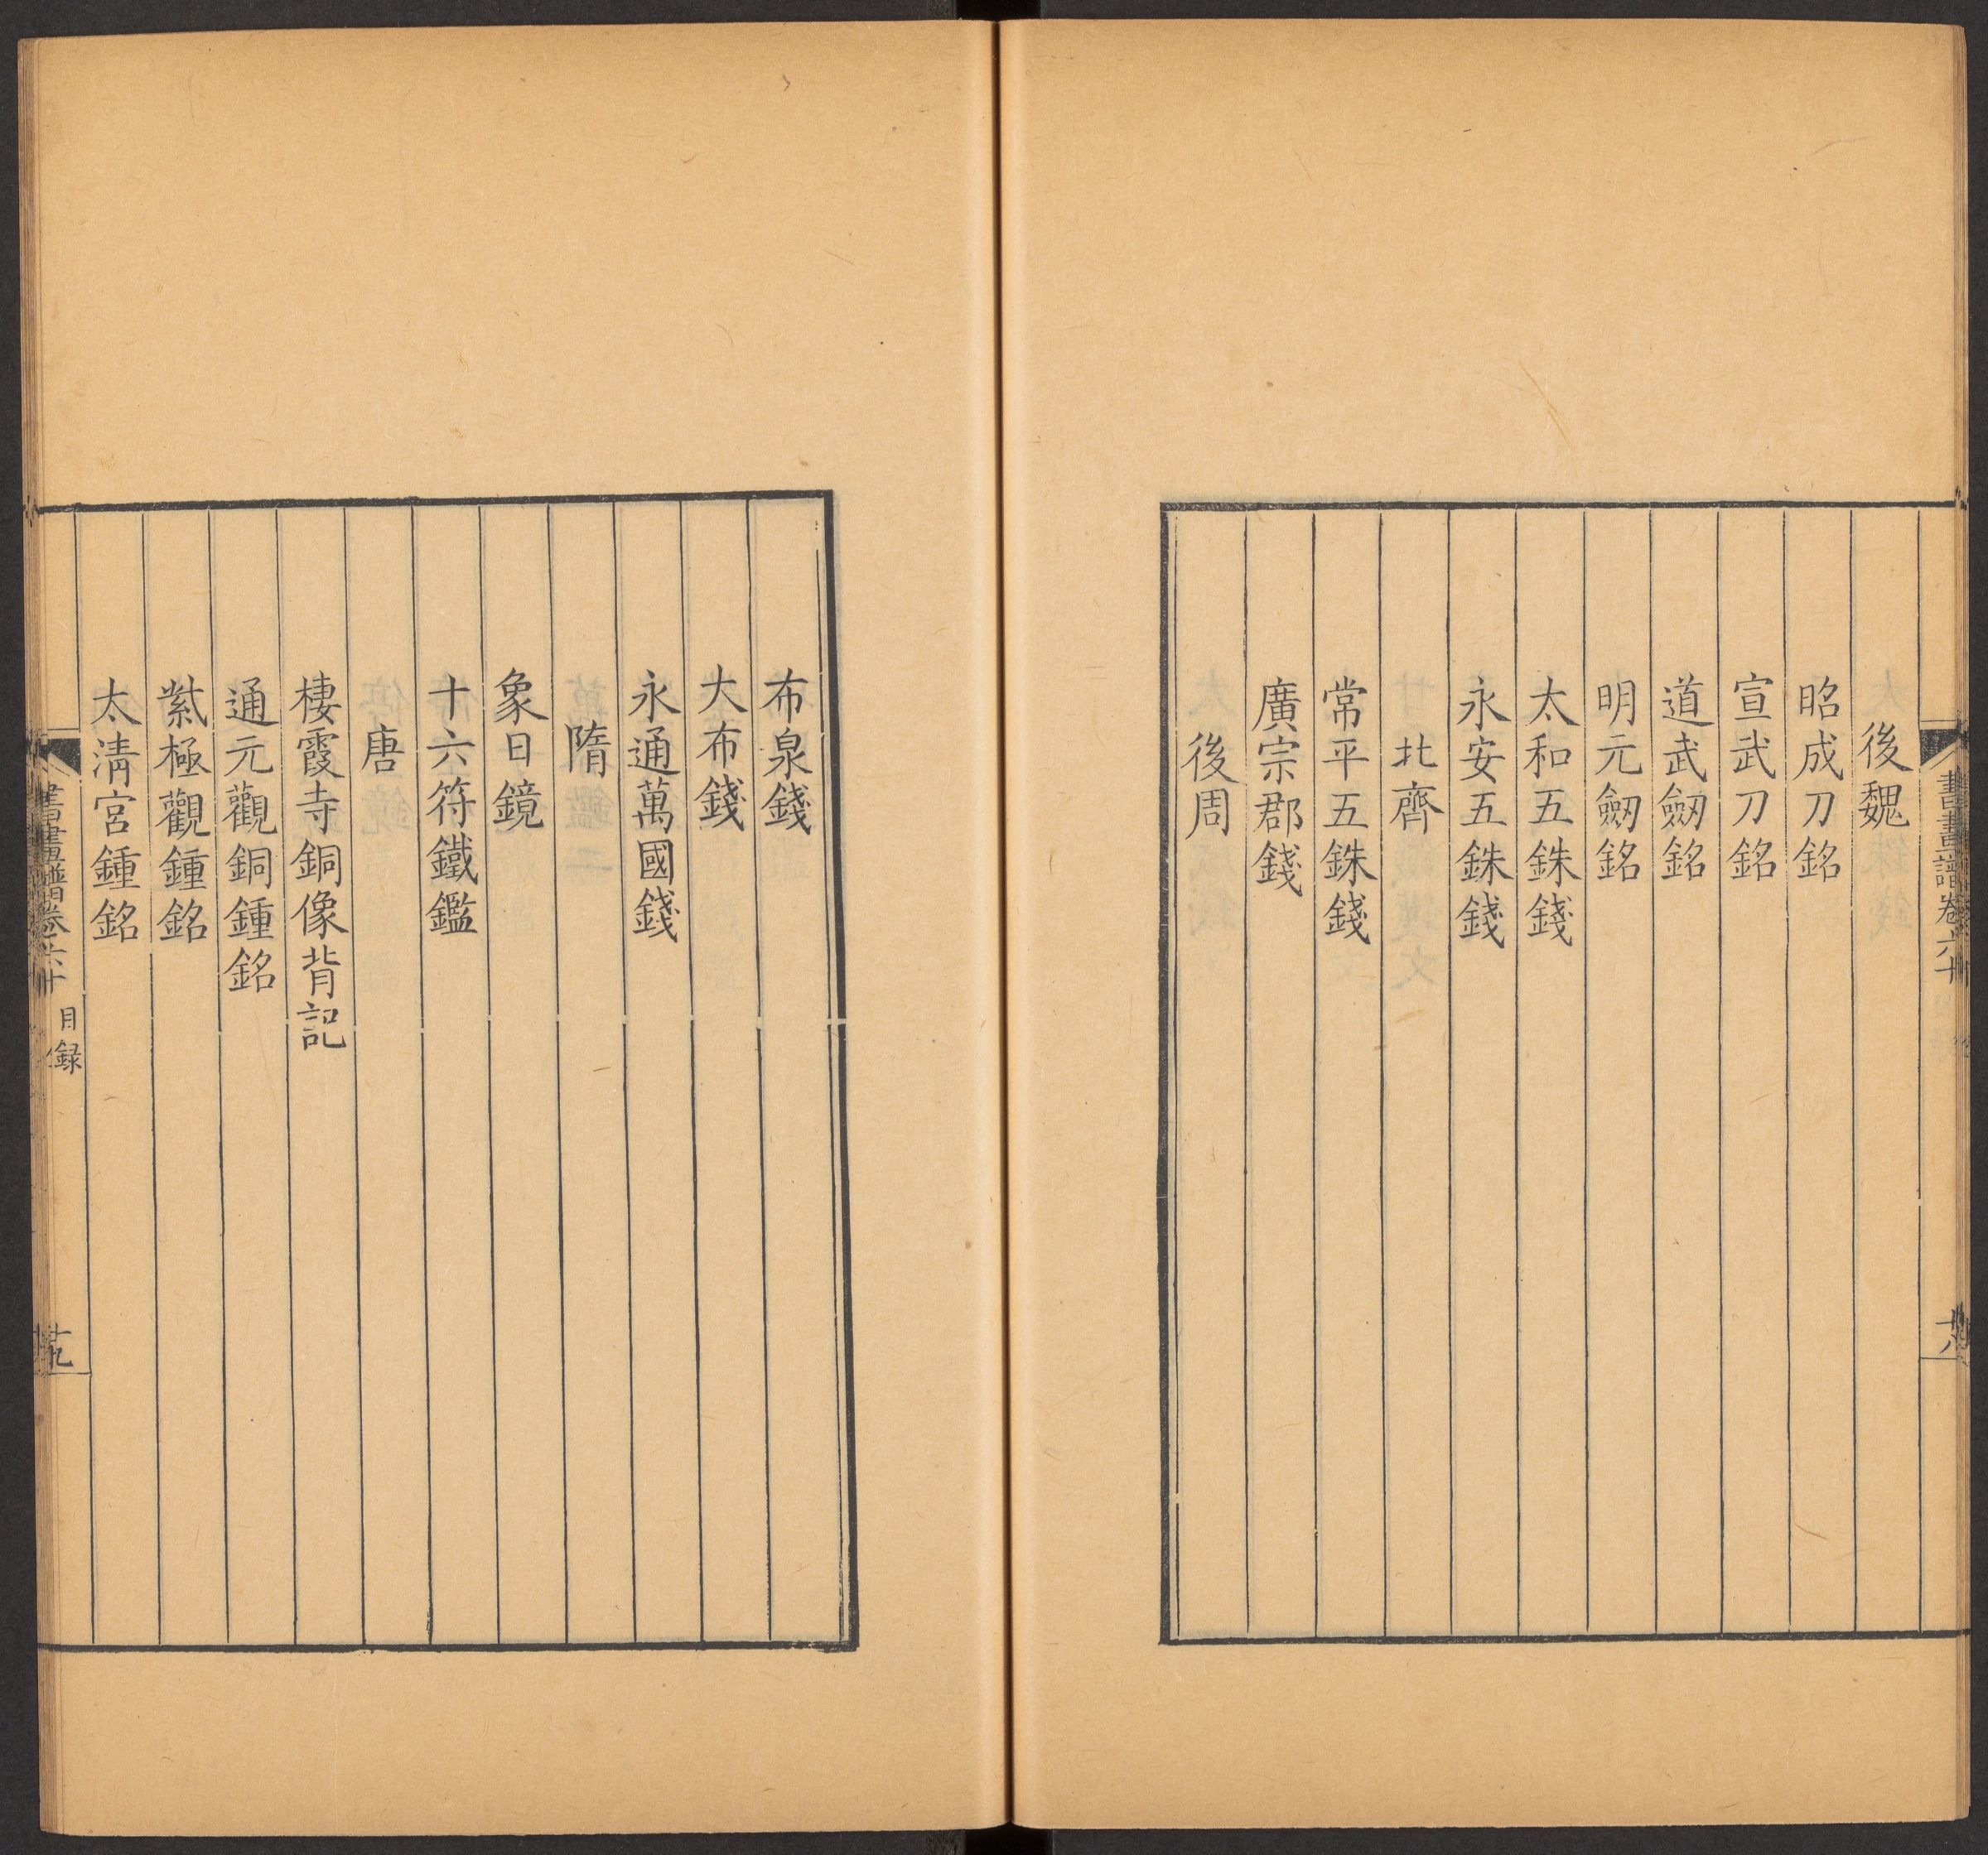 後魏
昭成刀銘
宣武刀銘
道武劒銘
明元劒銘
太和五銖錢
永安五銖錢
北齊
常平五銖錢
廣宗郡錢
後周
布泉錢
大布錢
永通萬國錢
隋
象日鏡
十六符鐵鑑
唐
棲霞寺銅像背記
通元觀銅鍾銘
紫極觀鍾銘
太清宮鍾銘
目錄